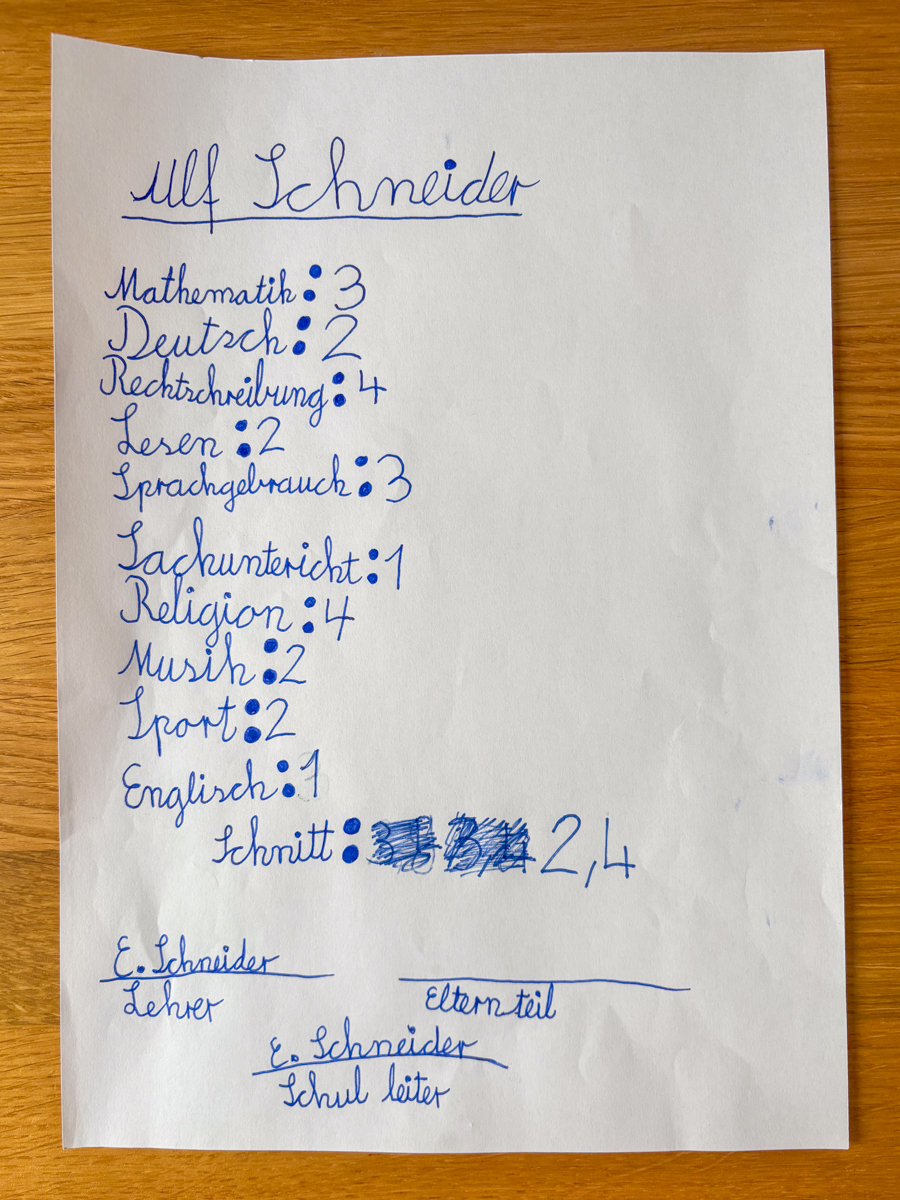 Ulf Schneider
Mathematik: 3
Deutsch: 2
Rechtschreibung: 4
Lesen: 2
Sprachgebrauch: 3
Sachuntericht: 1
Religion: 4
Musik: 2
Sport: 2
Englisch: 1
Schnitt: 2,4
E. Schneider
Lehrer
Elternteil
E. Schneider
Schul leiter